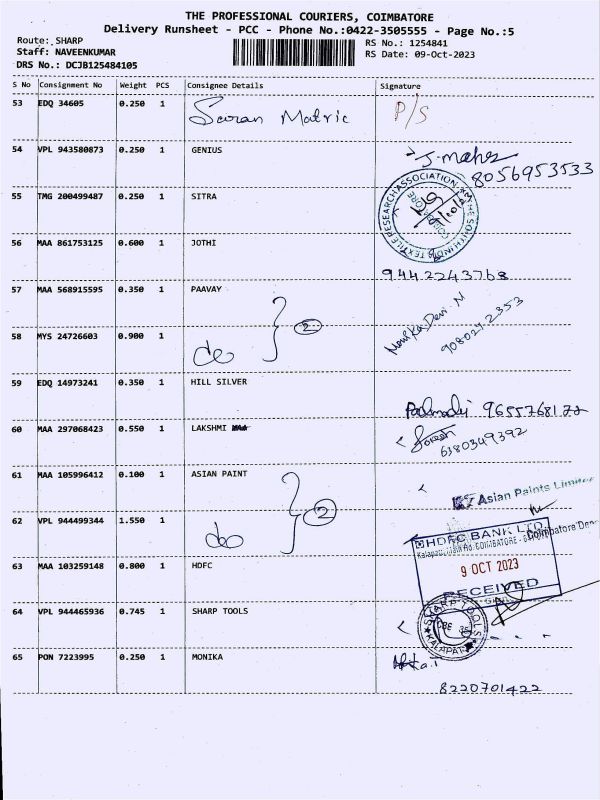 THE PROFESSIONAL COURIERS, COIMBATORE
Delivery Runsheet - PCC - Phone No.:0422-3505555 - Page No.:5
Route: SHARP
Staff: NAVEENKUMAR
DRS No.: DCJB125484105
RS No.: 1254841
RS Date: 09-Oct-2023
S No Consignment No Weight PCS Consignee Details Signature
53 EDQ 34605 0.250 1 Saran Matric P/S
54 VPL 943580873 0.250 1 GENIUS
8056953533
55 TMG 200499487 0.250 1 SITRA
THE SOUTH INDIA TEXTILE RESEARCH ASSOCIATION
COIMBATORE
56 MAA 861753125 0.600 1 JOTHI
9442243768
57 MAA 568915595 0.350 1 PAAVAY
58 MYS 24726603 0.900 1 do } 2
Devi N
59 EDQ 14973241 0.350 1 HILL SILVER
9655768172
60 MAA 297068423 0.550 1 LAKSHMI
6380349392
61 MAA 105996412 0.100 1 ASIAN PAINT
Asian Paints Limited
62 VPL 944499344 1.550 1 do } 2
Coimbatore
HDFC BANK LTD.
63 MAA 103259148 0.800 1 HDFC
9 OCT 2023
RECEIVED
64 VPL 944465936 0.745 1 SHARP TOOLS
SHARP TOOLS
CBE 35
65 PON 7223995 0.250 1 MONIKA
8220701422